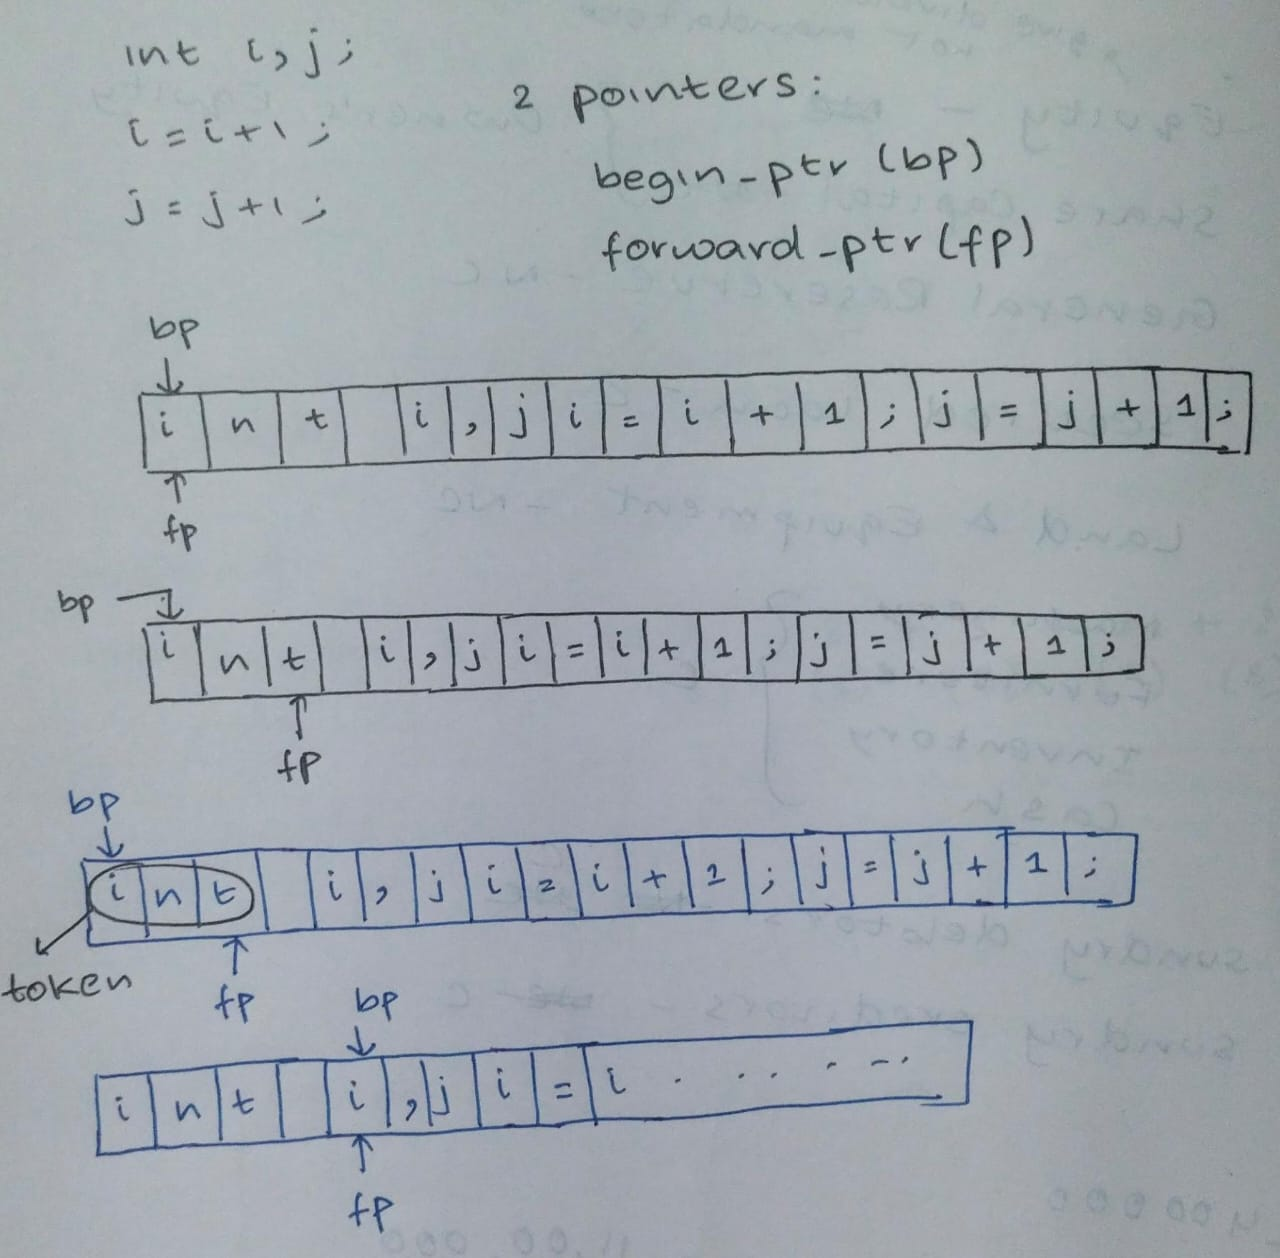 int i,j;
i=i+1;
j=j+1;
2 pointers:
begin-ptr (bp)
forward-ptr (fp)
bp
i n t i , j i = i + 1 ; j = j + 1 ;
fp
bp
i n t i , j i = i + 1 ; j = j + 1 ;
fp
bp
i n t i , j i = i + 1 ; j = j + 1 ;
token
fp
bp
i n t i , j i = i . . . . - .
fp